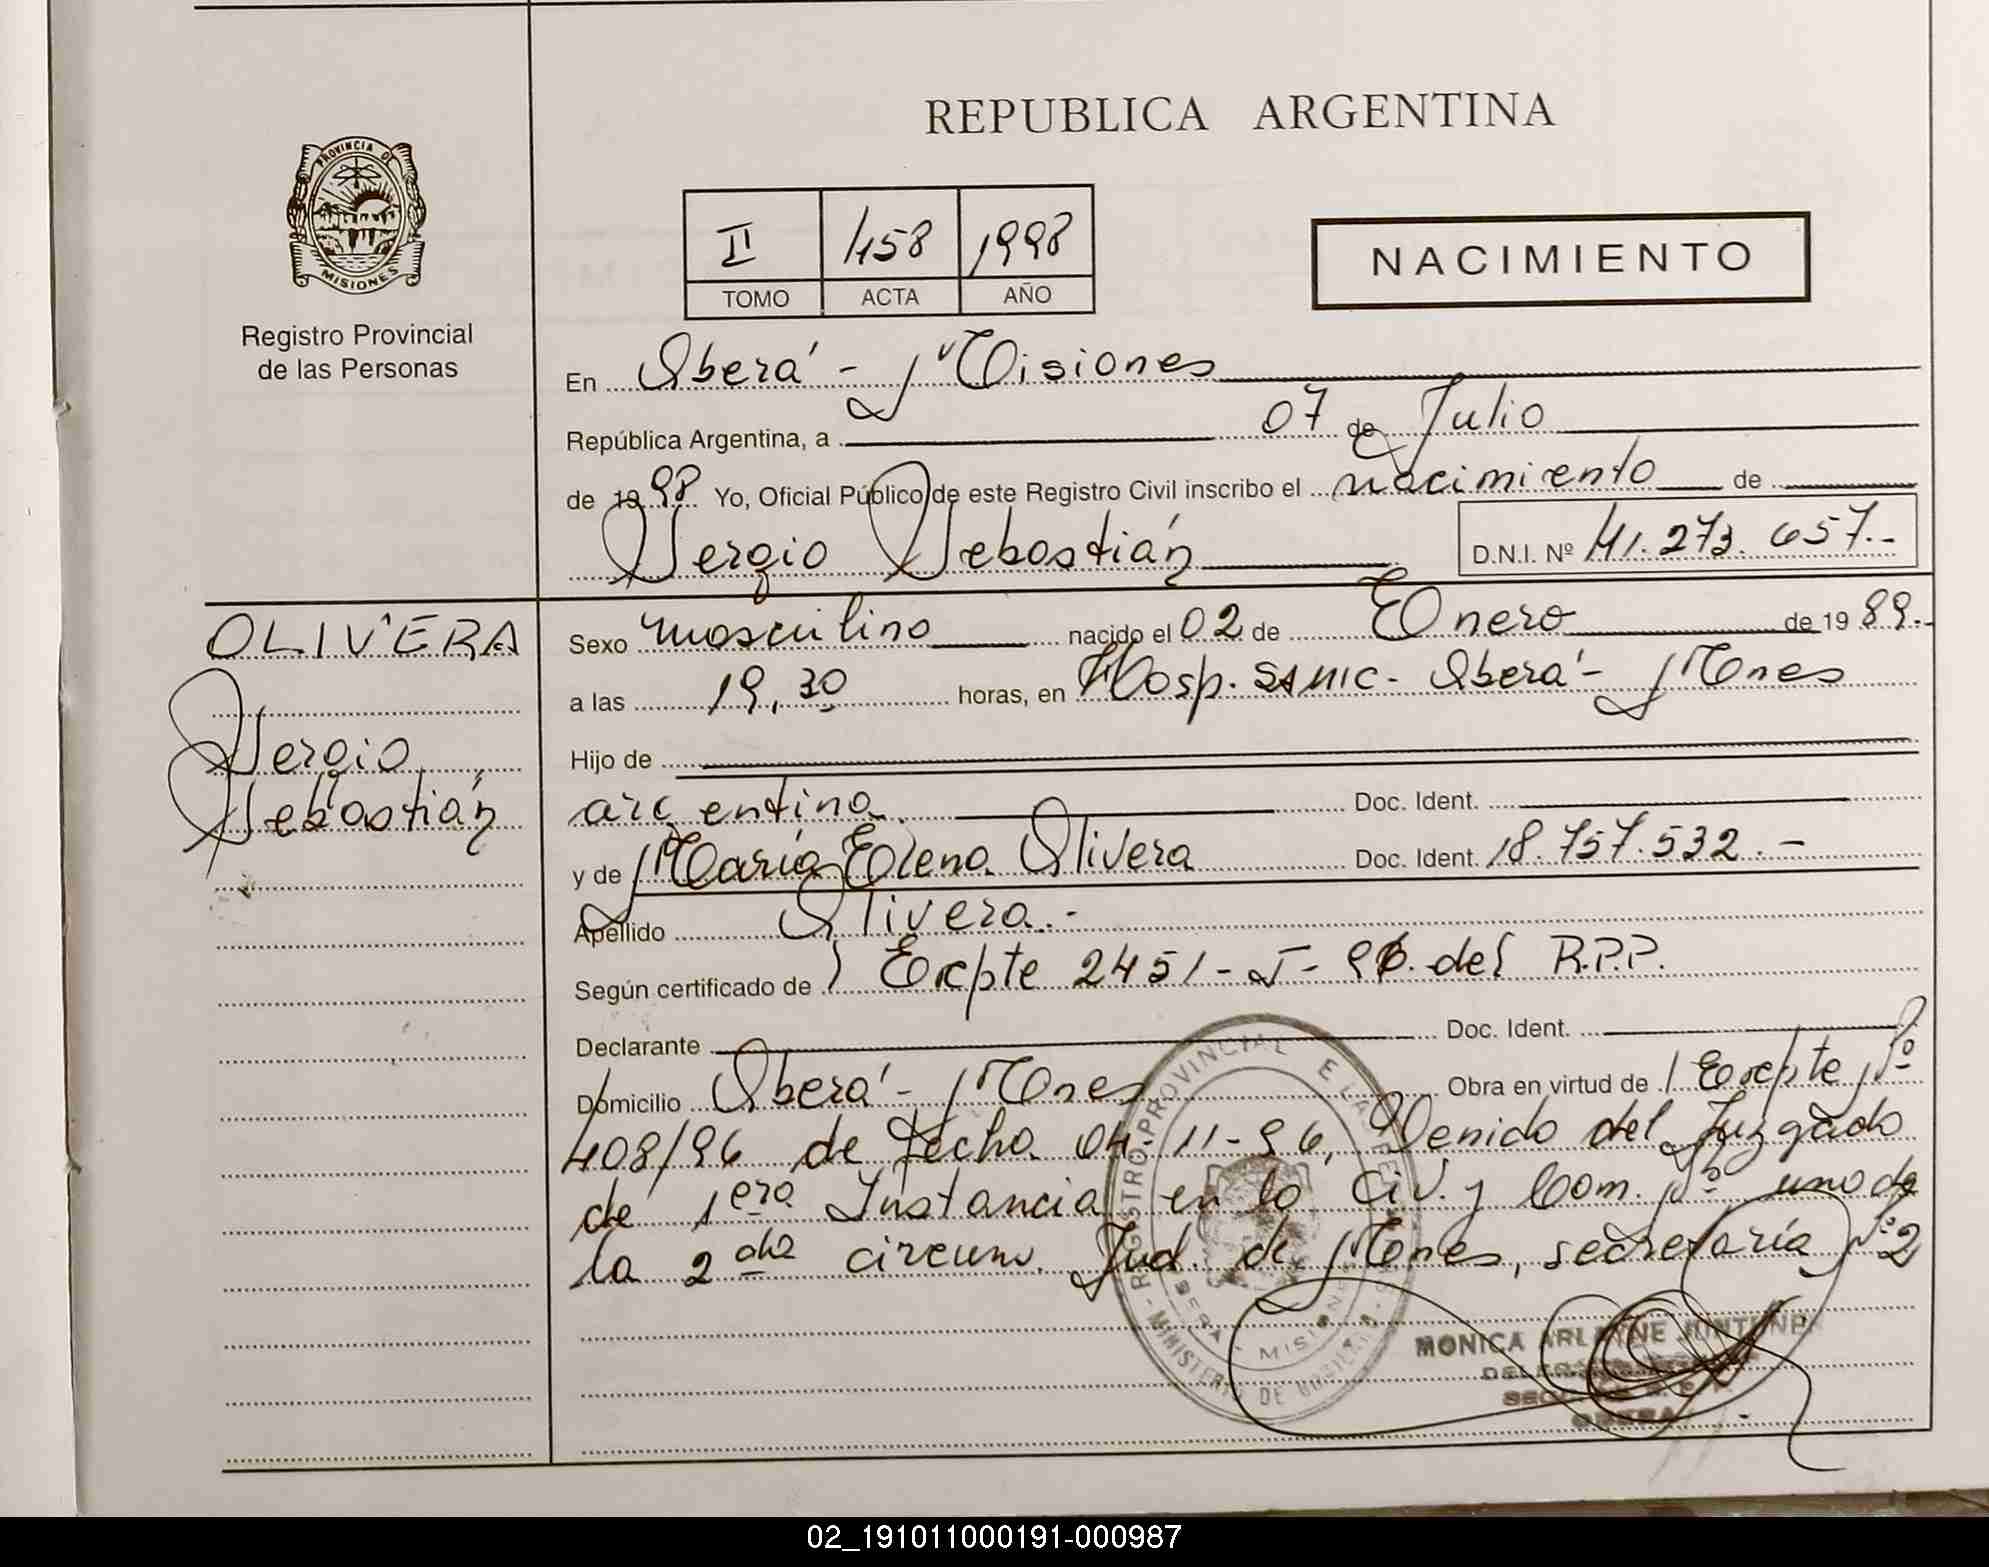 REPUBLICA ARGENTINA
PROVINCIA DE
MISIONES
Registro Provincial
de las Personas
II 458 1998
TOMO ACTA AÑO
NACIMIENTO
En Oberá - Misiones
República Argentina, a 07 de Julio
de 1998 Yo, Oficial Público de este Registro Civil inscribo el nacimiento de
Sergio Sebastián D.N.I. Nº 41.273.657.-
OLIVERA
Sergio
Sebastián
Sexo masculino nacido el 02 de Enero de 1989.-
a las 19,30 horas, en Hosp. SAMIC - Oberá - Mnes
Hijo de
argentina. Doc. Ident.
y de María Elena Olivera Doc. Ident. 18.757.532.-
Apellido Olivera.-
Según certificado de Expte 2451-I-96. del R.P.P.
Declarante Doc. Ident.
Domicilio Oberá - Mnes Obra en virtud de Expte Nº
408/96 de fecha 04-11-96, Venido del Juzgado
de 1era Instancia en lo Civ. y Com. Nº uno de
la 2da circuns. Jud. de Mnes, secretaría Nº 2
REGISTRO PROVINCIAL DE LAS PERSONAS
MINISTERIO DE
MISIONES
MONICA
OBERA
02_191011000191-000987